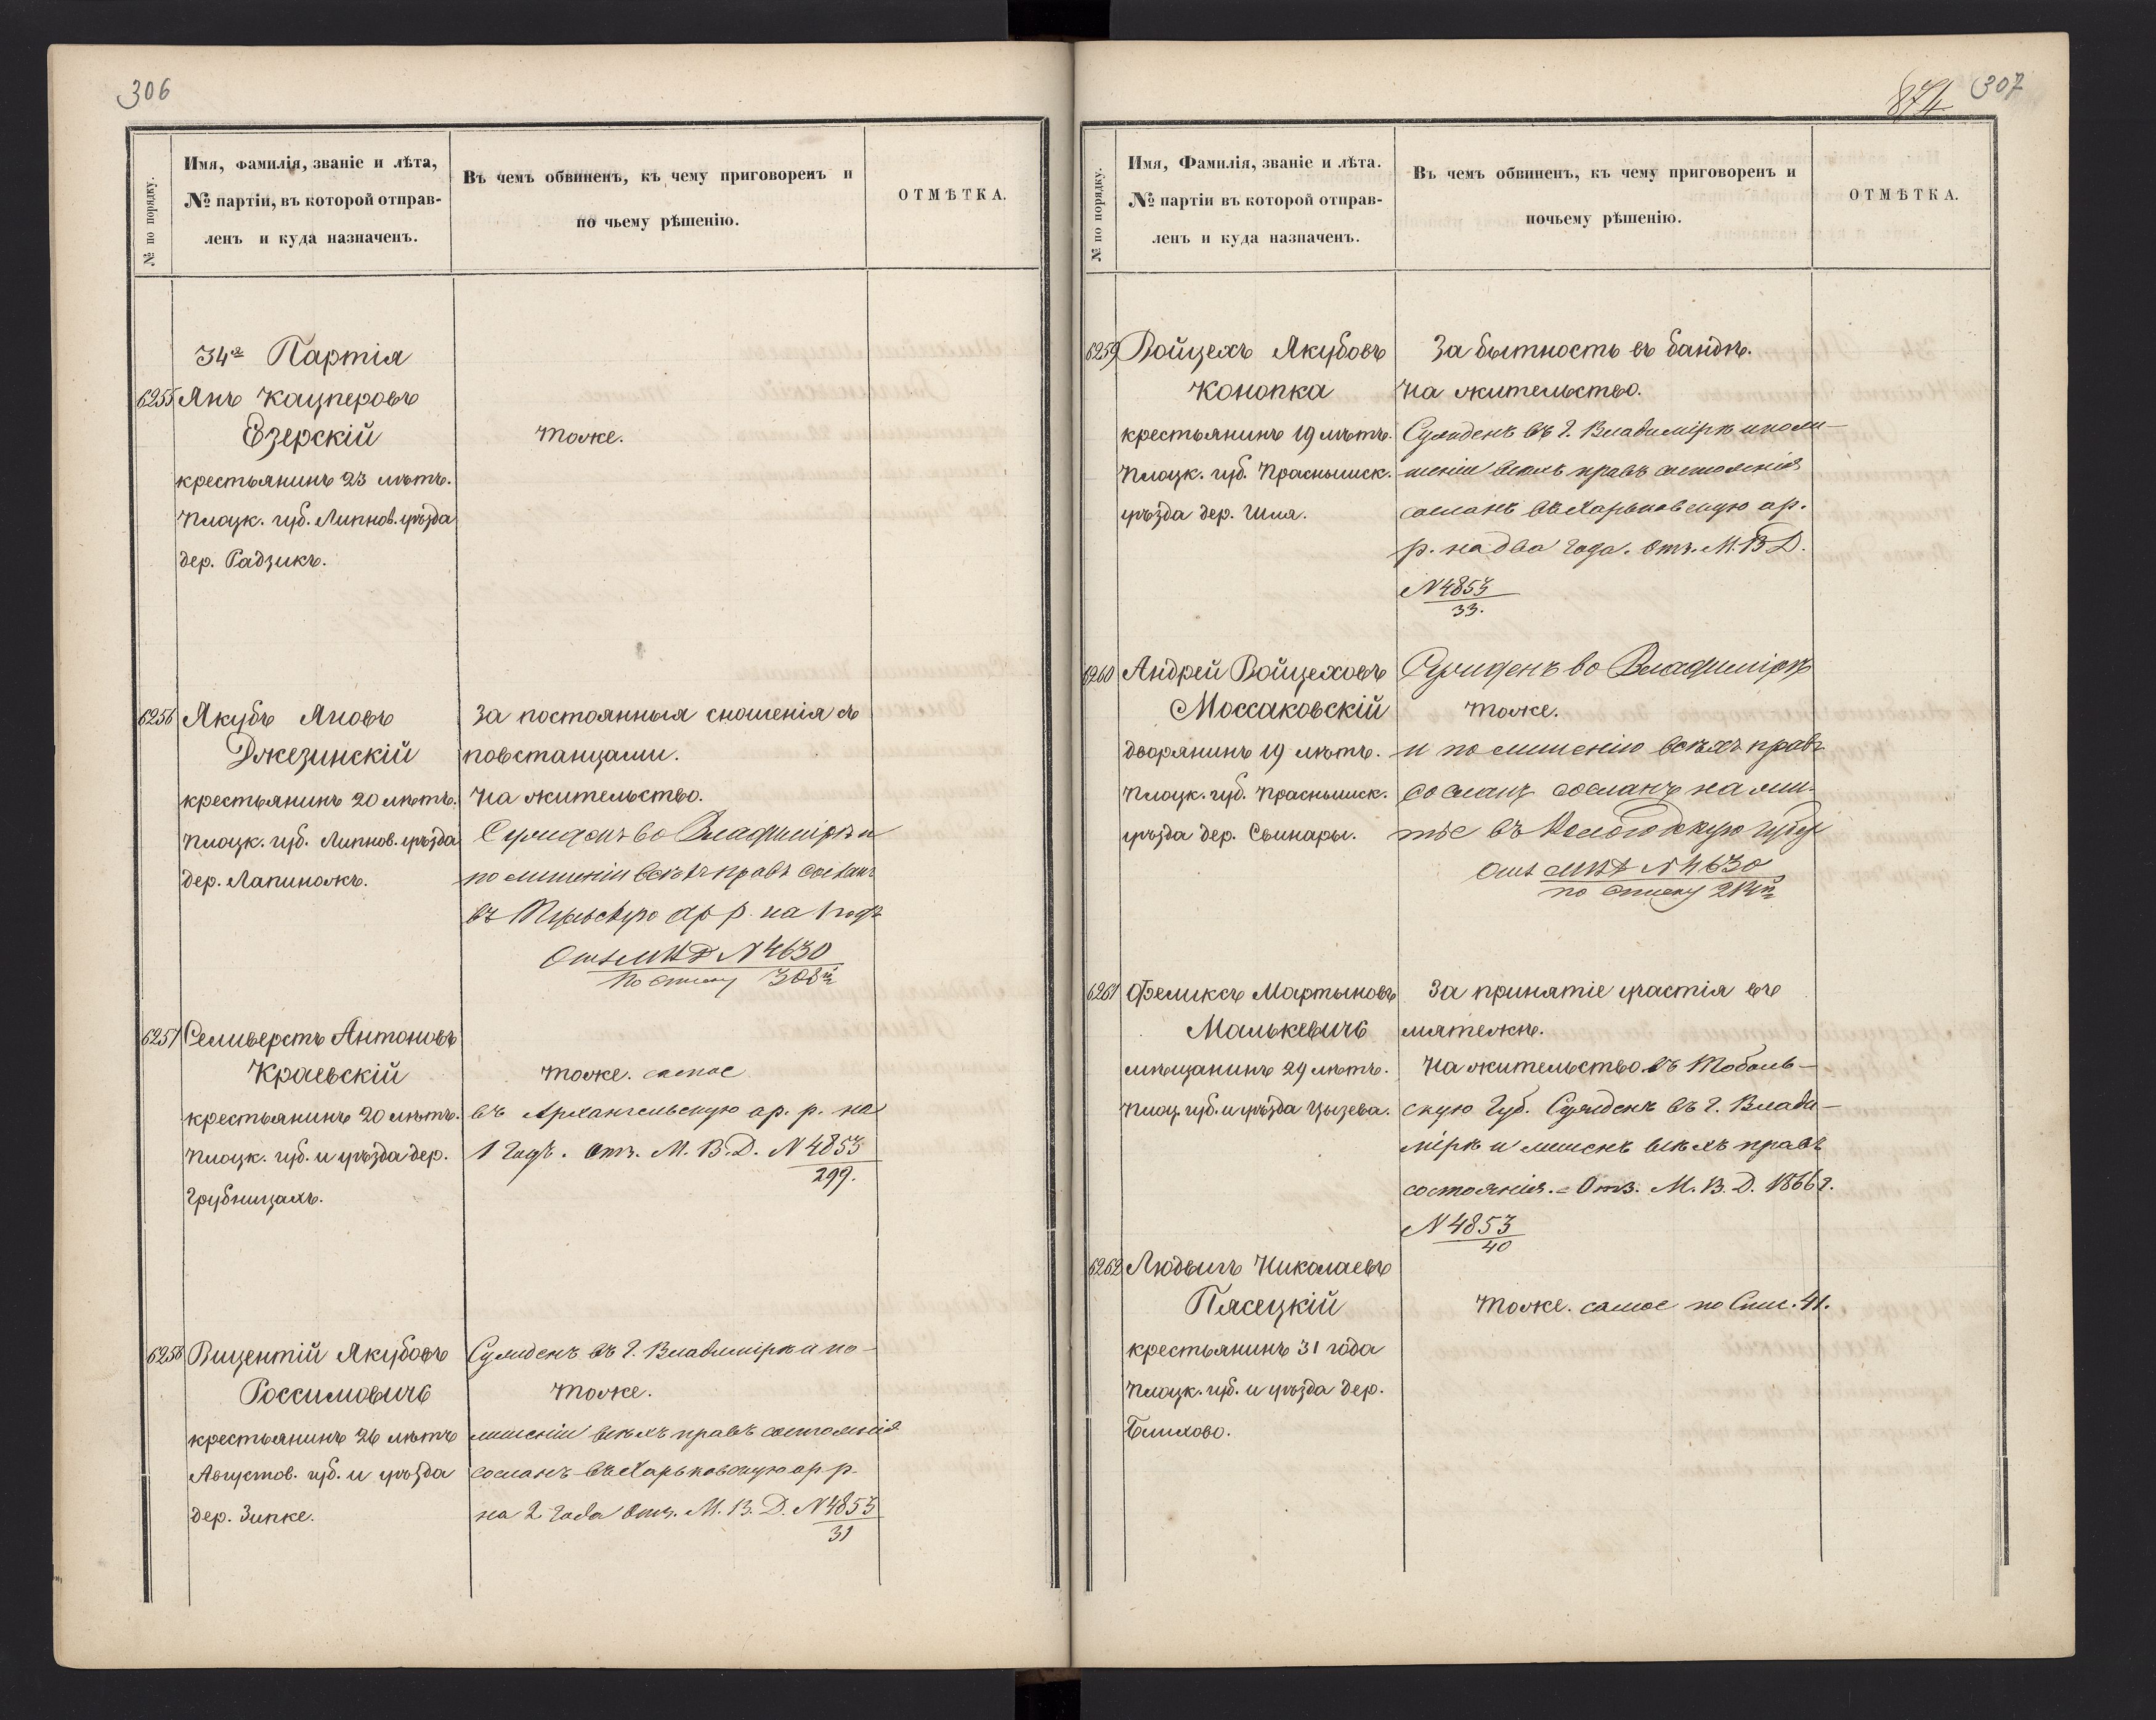 306
№ по порядку.
Имя, фамилія, званіе и лѣта,
№ партіи, въ которой отправ-
ленъ и куда назначенъ.
Въ чемъ обвиненъ, къ чему приговоренъ и
по чьему рѣшенію.
ОТМѢТКА.
34я Партія
6255 Янъ Кацперовъ
Езерскій
тоже.
крестьянинъ 23 лѣтъ.
Плоцк. губ. Липнов. уѣзда
дер. Радзикъ.
6256 Якубъ Яновъ
Джезинскій
крестьянинъ 20 лѣтъ.
Плоцк. губ. Липнов. уѣзда
дер. Лапиножъ.
За постоянныя сношенія съ
повстанцами.
На жительство.
Сужденъ во Владимірѣ и
по лишеніи всѣхъ правъ сосланъ
въ ар р. на 1 годъ
Отз МВД N 4630
по списку 308й
6257 Селиверстъ Антоновъ
Краевскій
крестьянинъ 20 лѣтъ.
Плоцк. губ. и уѣзда дер.
Грубницахъ.
тоже. самое
въ Архангельскую ар. р. на
1 годъ. Отз. М. В. Д. N 4853
299.
6258 Вицентій Якубовъ
Россимовичъ
крестьянинъ 26 лѣтъ
Августов. губ. и уѣзда
дер. Зипке.
Сужденъ въ г. Владимірѣ и по-
тоже.
лишеніи всѣхъ правъ состоянія
сосланъ въ Харьковскую ар. р.
на 2 года Отз. М. В. Д. N 4853
31
874 307
№ по порядку.
Имя, Фамилія, званіе и лѣта.
№ партіи въ которой отправ-
ленъ и куда назначенъ.
Въ чемъ обвиненъ, къ чему приговоренъ и
почьему рѣшенію.
ОТМѢТКА.
6259 Войцехъ Якубовъ
Конопка
крестьянинъ 19 лѣтъ.
Плоцк. губ. Праснышск.
уѣзда дер. Шля.
За бытность въ бандѣ.
На жительство.
Сужденъ въ г. Владимірѣ и по ли-
шеніи всѣхъ правъ состоянія
сосланъ въ Харьковскую ар.
р. на два года. Отз. М. В Д.
N 4853
33.
6260 Андрей Войцеховъ
Моссаковскій
дворянинъ 19 лѣтъ.
Плоцк. губ. Праснышск.
уѣзда дер. Свинары.
Сужденъ во Владимірѣ
тоже.
и по лишенію всѣхъ правъ
сосланъ сосланъ на жи-
тье въ Вологодскую губер
Отз МВД N 4630
по списку
6261 Феликсъ Мартыновъ
Малькевичъ
мѣщанинъ 29 лѣтъ.
Плоц. губ. и уѣзда Цызева.
За принятіе участія въ
мятежѣ.
На жительство. въ Тоболь-
скую губ. Сужденъ въ г. Влади-
мірѣ и лишенъ всѣхъ правъ
состоянія. = Отз. М. В. Д. 1866 г.
N 4853
40
6262 Людвигъ Николаевъ
Пясецкій
тоже. самое по Спис. 41.
крестьянинъ 31 года
Плоцк. губ. и уѣзда дер.
Блихово.